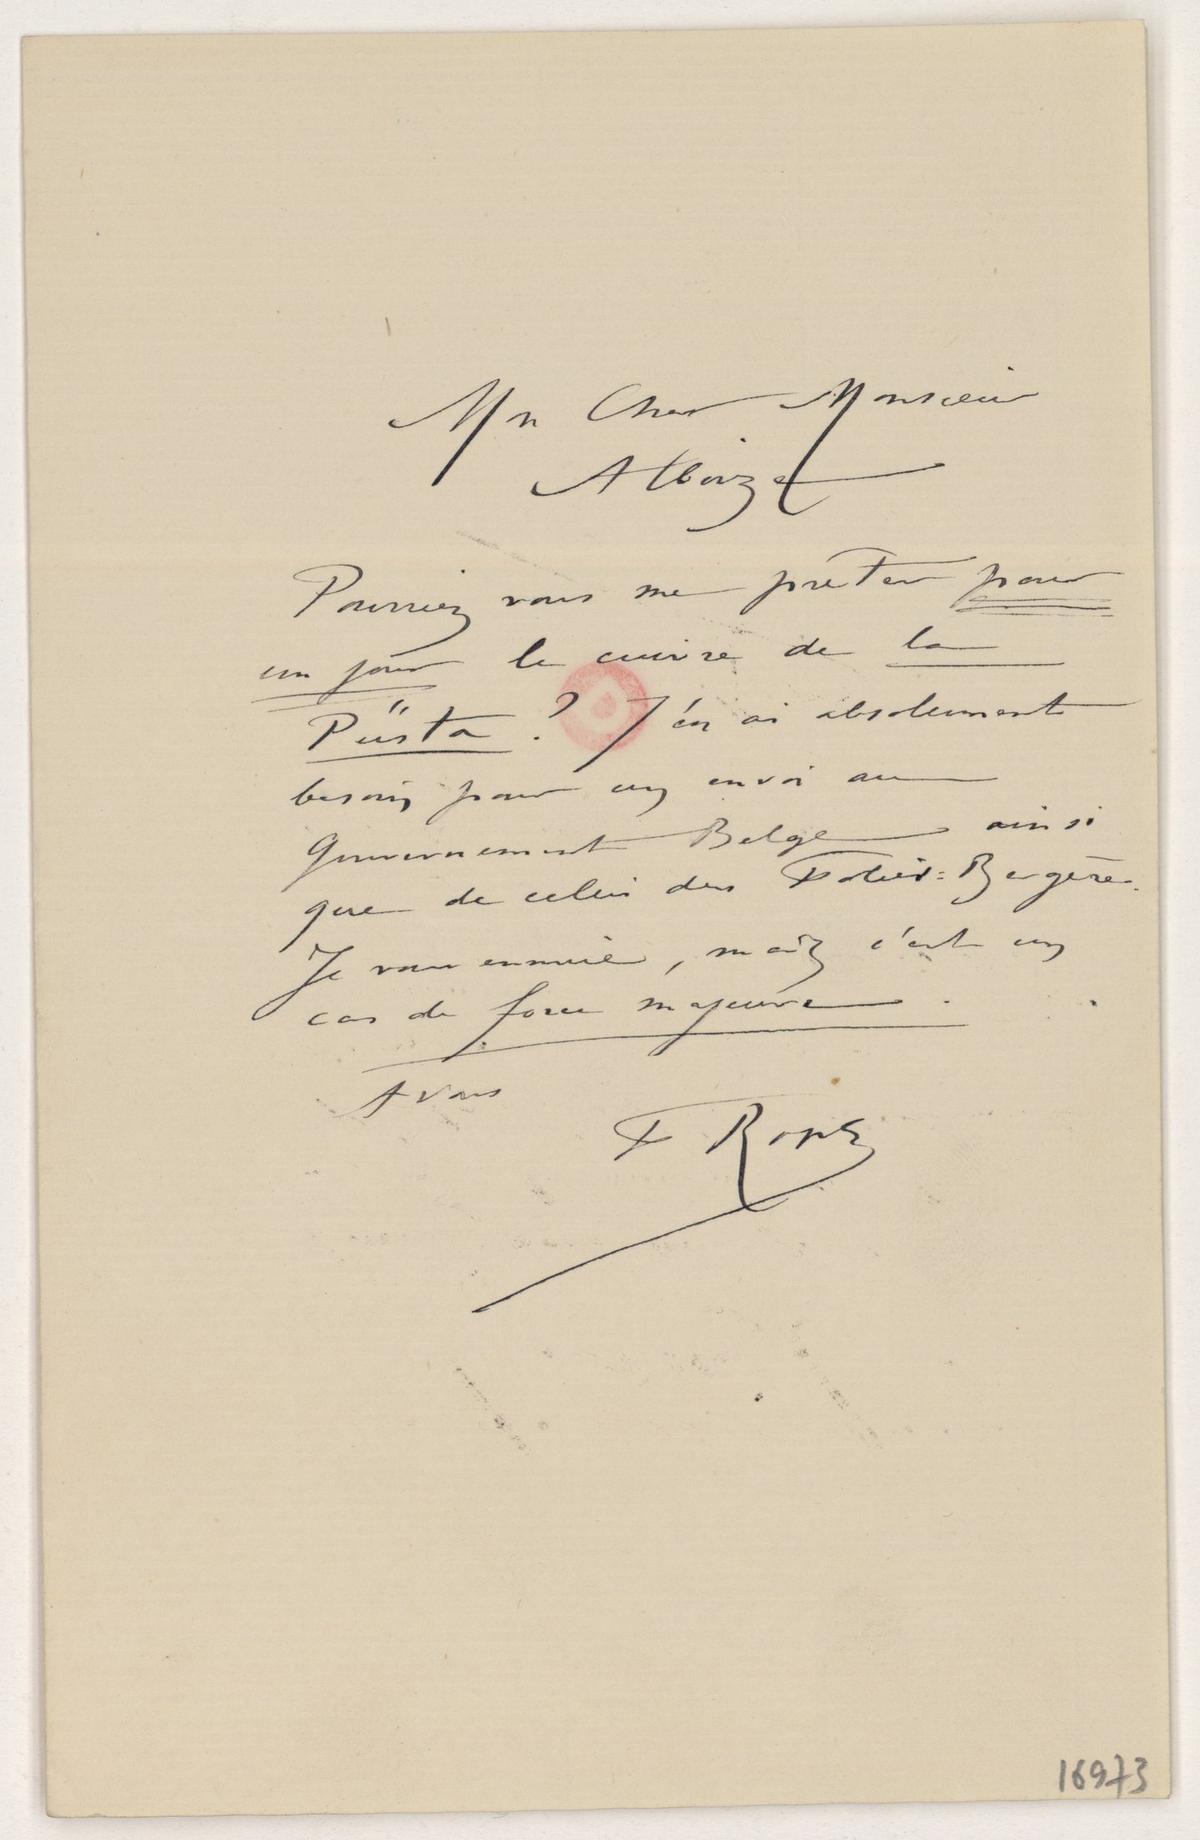 Mn Cher Monsieur
Alboize
Pourriez vous me prêter pour
un jour le cuivre de la
Püsta ? J'en ai absolument
besoin pour un envoi au
gouvernement Belge ainsi
que de celui des Folies-Bergère.
Je vous ennuie, mais c'est un
cas de force majeure.
A vous
F Rops
16973